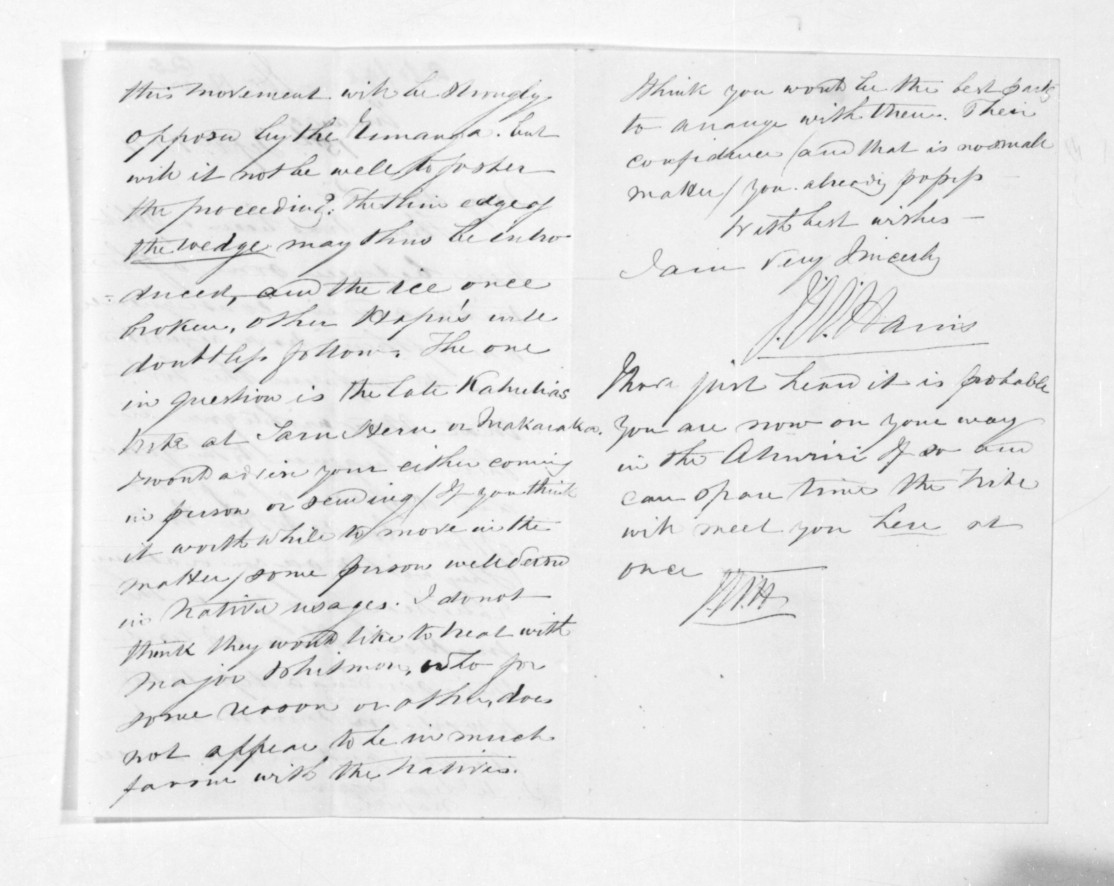 this movement will be strongly
opposed by the Runanga. but
will it not be well to foster
the proceeding? the thin edge of
the wedge may thus be intro
=duced, and the Ice once
broken, other Hapu's will
doubtless follow. The one
in question is the late Kahutias
tribe at Taru Heru or Makaraka.
I would advise your either coming
in person or sending (If you think
it worth while to move in the
matter) some person well versed
in Native usages. I do not
think they would like to treat with
Major Whitmore, who for
some reason or other, does
not appear to be in much
favour with the Natives.
I think you would be the best party
to arrange with them. Their
confidence (and that is no small
matter) you already possess –
With best wishes –
I am Very Sincerely
J.W. Harris
I have just heard it is probable
you are now on your way
in the Ahuriri If so and
can spare time the Tribe
will meet you here at
once J.W.H